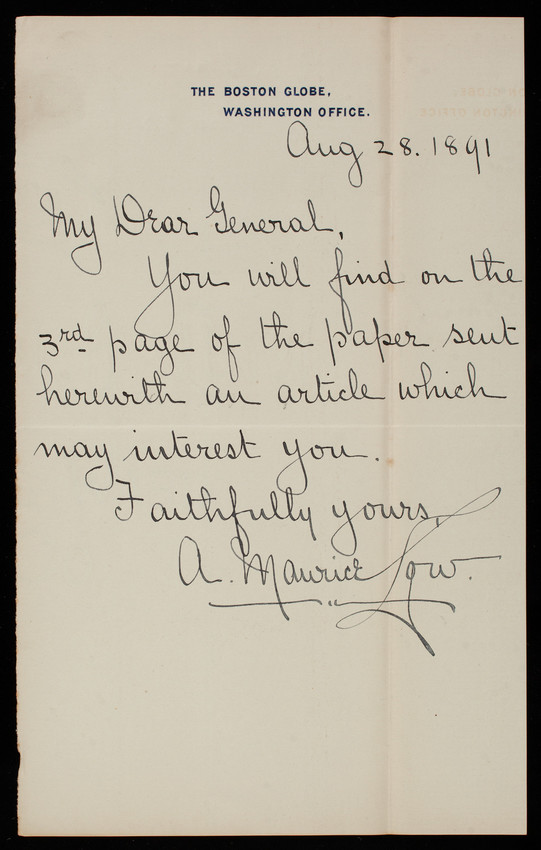 THE BOSTON GLOBE,
WASHINGTON OFFICE.
Aug 28. 1891
My Dear General,
You will find on the
3rd page of the paper sent
herewith an article which
may interest you.
Faithfully yours,
A. Maurice Low.